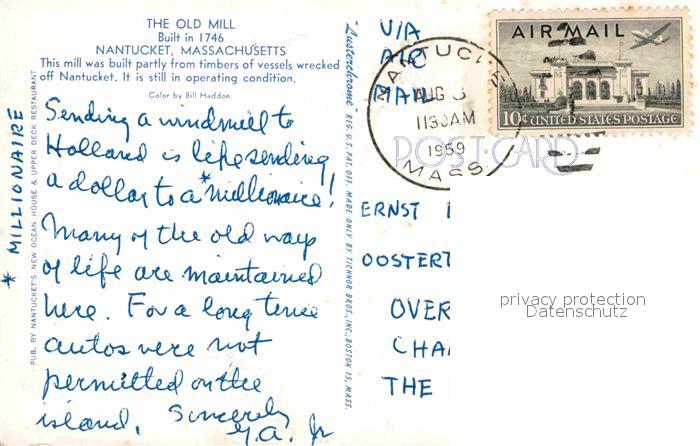 THE OLD MILL
Built in 1746
NANTUCKET, MASSACHUSETTS
This mill was built partly from timbers of vessels wrecked
off Nantucket. It is still in operating condition.
Color by Bill Haddon.
Sending a windmill to
Holland is like sending
a dollar to a *millionaire!
Many of the old ways
of life are maintained
here. For a long time
autos were not
permitted on the
island. Sincerely
G.A. Jr
* MILLIONAIRE
PUB. BY NANTUCKET'S NEW OCEAN HOUSE & UPPER DECK RESTAURANT
"Lusterchrome" REG. U.S. PAT. OFF. MADE ONLY BY TICHNOR BROS., INC., BOSTON 15, MASS.
VIA
AIR
MAIL
NANTUCKET
AUG
1130AM
1959
MASS.
AIR MAIL
10¢ UNITED STATES POSTAGE
POST CARD
ERNST
OOSTERT
OVER
CHA
THE
privacy protection
Datenschutz